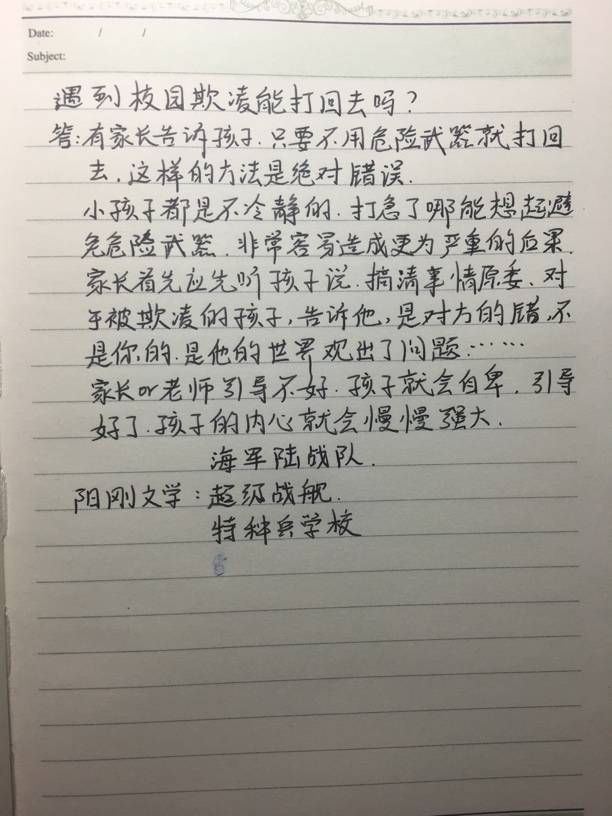 Date: / /
Subject:
遇到校园欺凌能打回去吗？
答：有家长告诉孩子．只要不用危险武器就打回
去．这样的方法是绝对错误．
小孩子都是不冷静的．打急了哪能想起避
免危险武器．非常容易造成更为严重的后果．
家长首先应先听孩子说．搞清事情原委、对
于被欺凌的孩子，告诉他，是对方的错，不
是你的．是他的世界观出了问题……
家长or老师引导不好．孩子就会自卑．引导
好了．孩子的内心就会慢慢强大．
海军陆战队．
阳刚文学：超级战舰．
特种兵学校